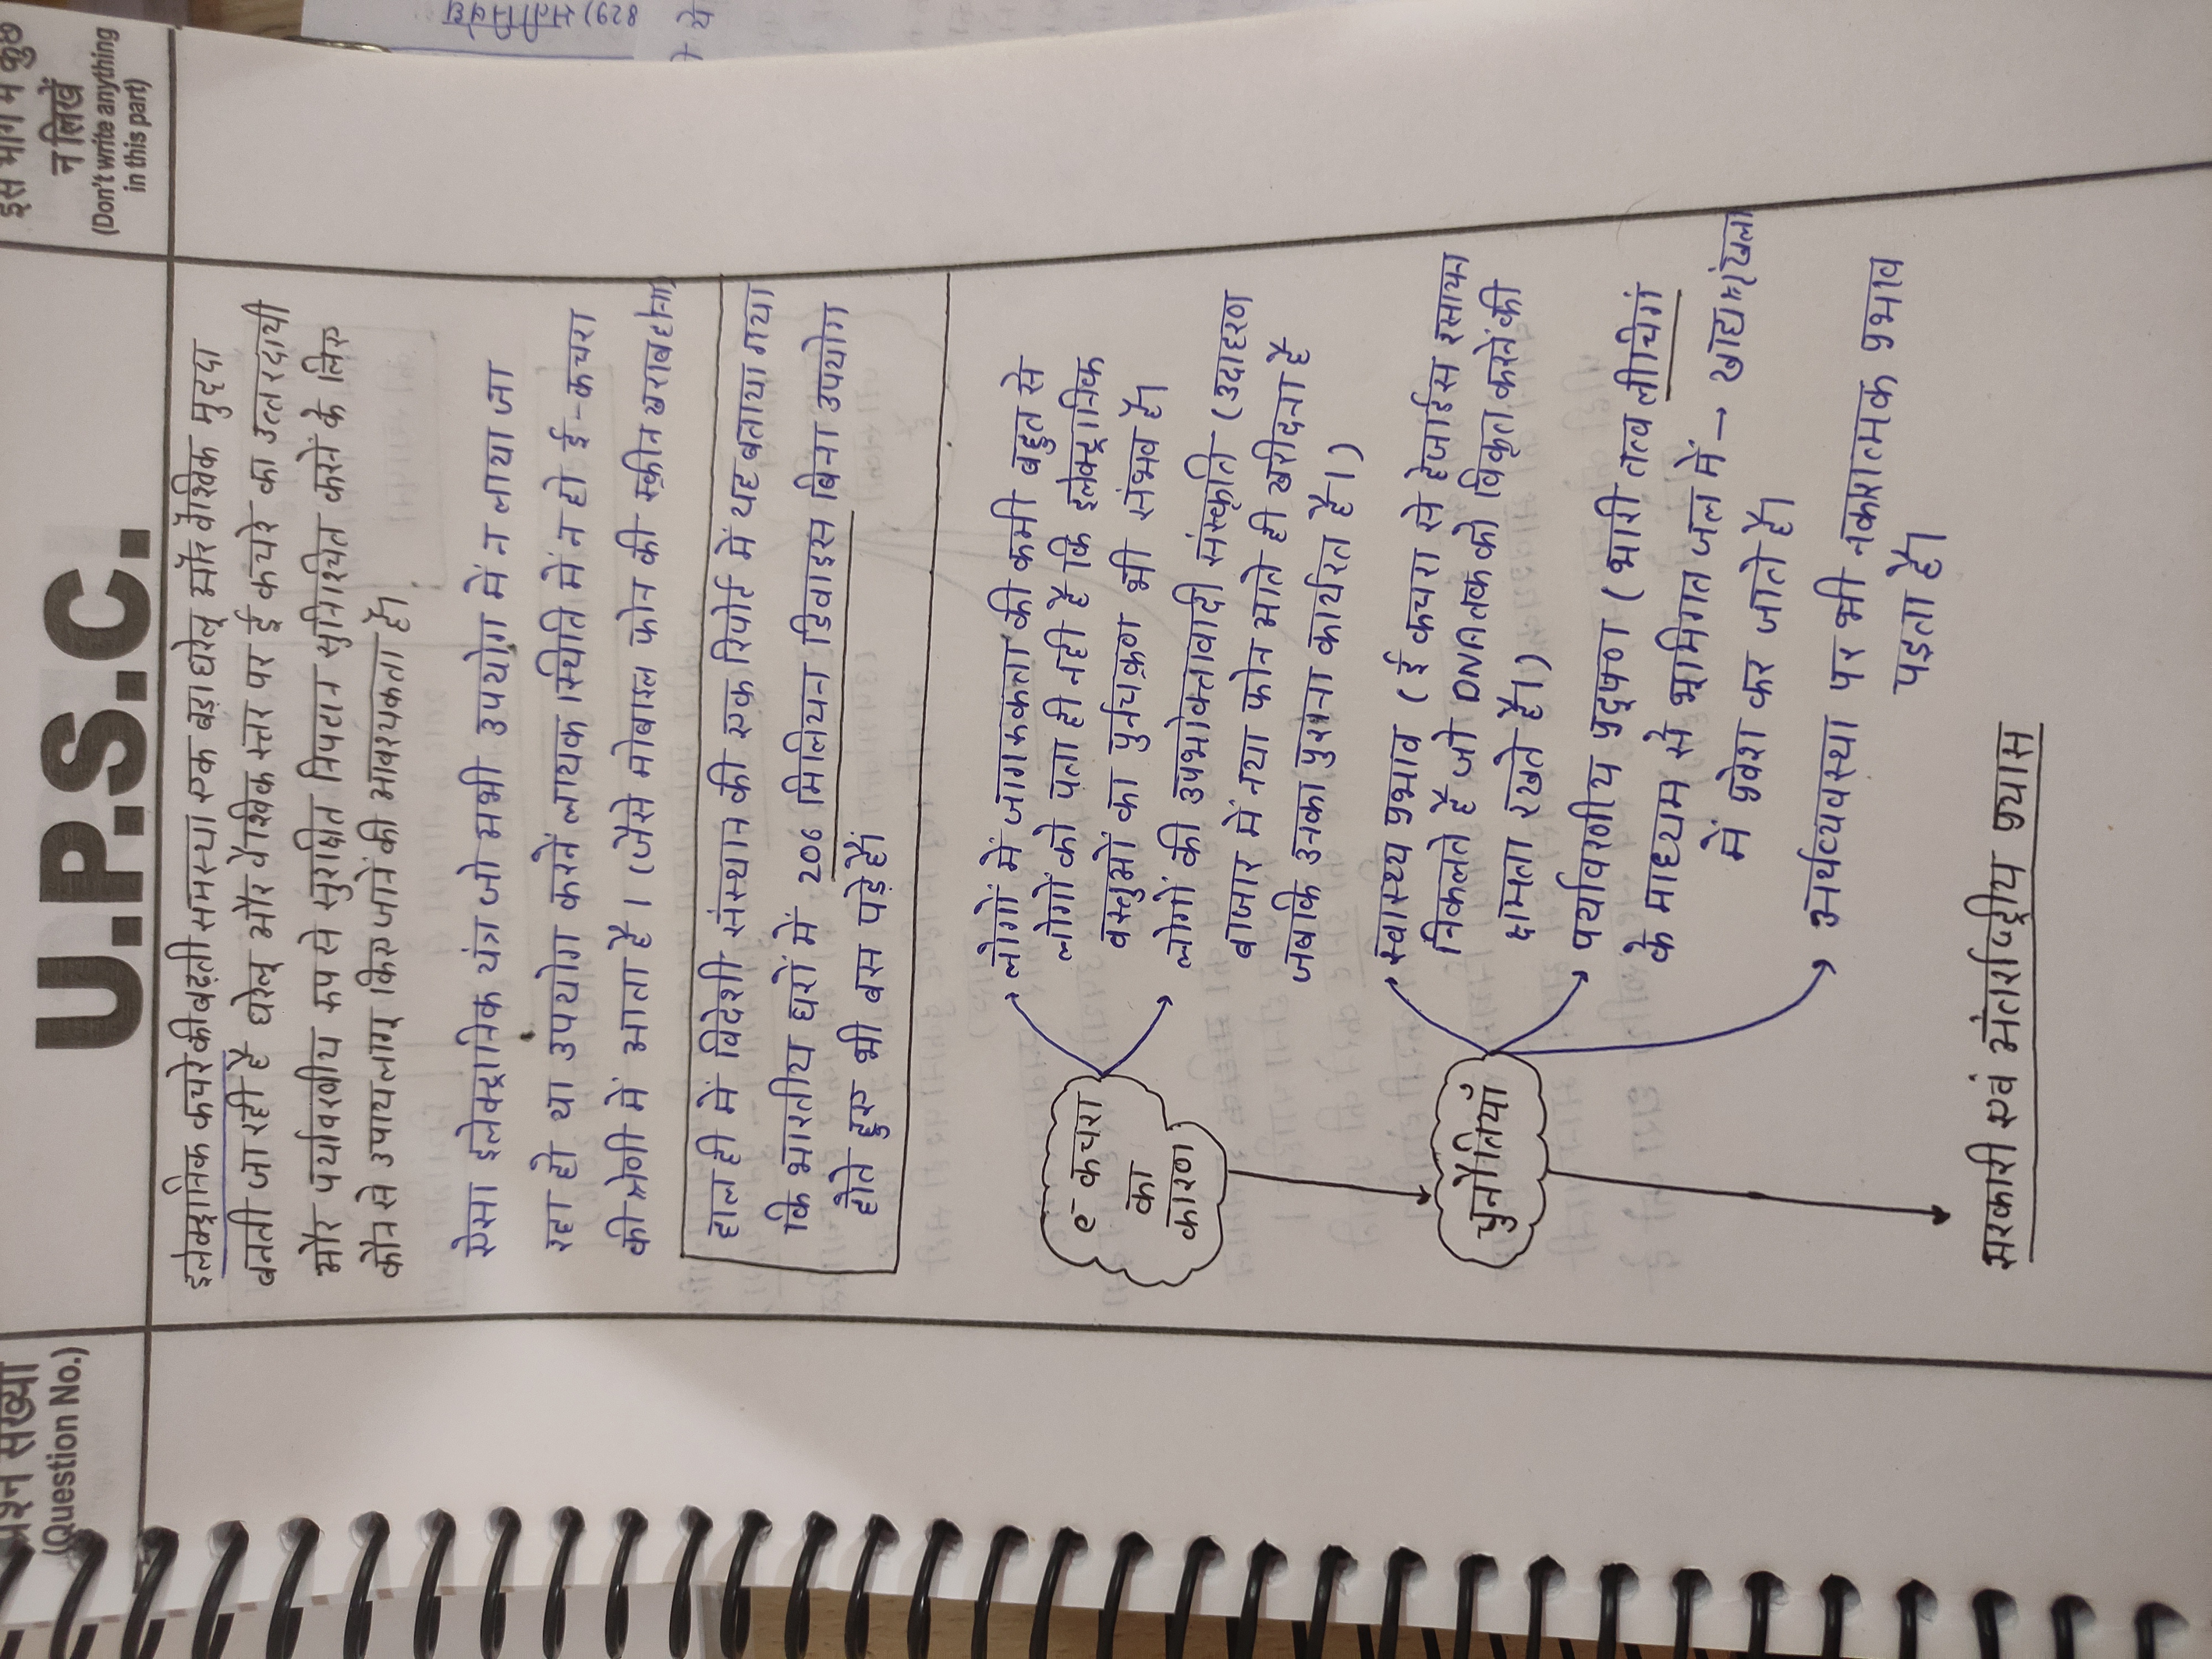 प्रश्न संख्या
(Question No.)
U.P.S.C.
इस भाग में कुछ
न लिखें
(Don't write anything
in this part)
इलेक्ट्रानिक कचरे की बढ़ती समस्या एक बड़ा घरेलू और वैश्विक मुद्दा
बनती जा रही है घरेलू और वैश्विक स्तर पर ई कचरे का उत्तरदायी
और पर्यावरणीय रूप से सुरक्षित निपटान सुनिश्चित करने के लिए
कौन से उपाय लागू किए जानें की आवश्यकता है।
ऐसा इलेक्ट्रानिक यंत्र जो अभी उपयोग में न लाया जा
रहा हो या उपयोग करनें लायक स्थिति में न हो ई-कचरा
की श्रेणी में आता है। (जैसे मोबाइल फोन की स्क्रीन खराब होना)
हाल ही में विदेशी संस्थान की एक रिपोर्ट में यह बताया गया
कि भारतीय घरों में 206 मिलियन डिवाइस बिना उपयोग
होते हुए भी बस पड़े हैं।
e- कचरा
का
कारण
लोगों में जागरूकता की कमी बहुत से
लोगों को पता ही नही है कि इलेक्ट्रानिक
वस्तुओं का पुर्नचक्रण भी संभव है।
लोगों की उपभोक्तावादी संस्कृति (उदाहरण
बाजार में नया फोन आते ही खरीदना है
जबकि उनका पुराना कार्यरत है।)
चुनौतियाँ
स्वास्थ्य प्रभाव (ई कचरा से हेजार्डस रसायन
निकलते है जो DNA तक को विकृत करनें की
क्षमता रखते है।)
पर्यावरणीय प्रदूषण (भारी तत्व लीचिंग
के माध्यम से भूमिगत जल में → खाद्य श्रृंखला
में प्रवेश कर जाते है।
अर्थव्यवस्था पर भी नकारात्मक प्रभाव
पड़ता है।
सरकारी एवं अंतर्राष्ट्रीय प्रयास